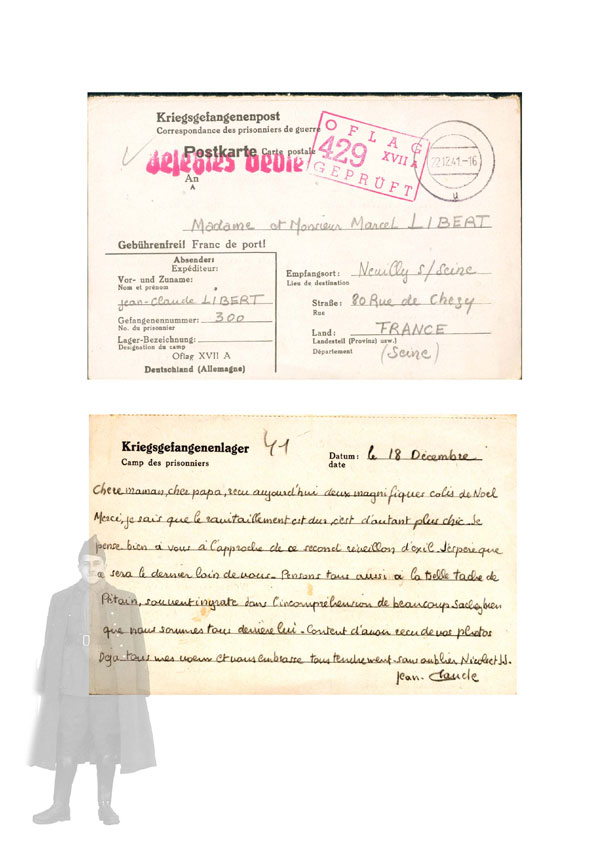 Kriegsgefangenenpost
Correspondance des prisonniers de guerre
Postkarte Carte postale
OFLAG
429 XVII A
GEPRÜFT
22.12.41-16
An
A
Madame et Monsieur Marcel LIBERT
Gebührenfrei! Franc de port!
Absender:
Expéditeur:
Vor- und Zuname:
Nom et prénom
jean-Claude LIBERT
Gefangenennummer: 300
No. du prisonnier
Lager-Bezeichnung:
Désignation du camp
Oflag XVII A
Deutschland (Allemagne)
Empfangsort: Neuilly s/Seine
Lieu de destination
Straße: 80 Rue de Chezy
Rue
Land: FRANCE
Landesteil (Provinz) usw.)
Département (Seine)
Kriegsgefangenenlager 41
Camp des prisonniers
Datum: le 18 Décembre
date
Chere maman, cher papa, recu aujourd'hui deux magnifiques colis de Noel
Merci, je sais que le ravitaillement est dur, c'est d'autant plus chic Je
pense bien à vous à l'approche de ce second réveillon d'exil. J'espere que
ce sera le dernier loin de vous - Pensons tous aussi a la belle tache de
Pétain, souvent ingrate dans l'incompréhension de beaucoup Sachez bien
que nous sommes tous derriere lui - Content d'avoir recu de vos photos
Deja tous mes voeux et vous embrasse tous tendrement - sans oublier Nicole et
jean-Claude